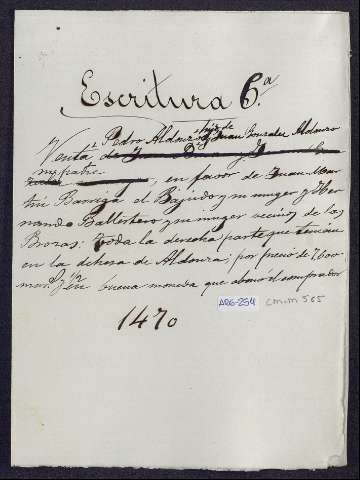 Escritura 6.ª
Pedro Aldonzo hijo de Juan Gonzalez Aldonzo
Venta de
my padre
, en favor de Juan Mar
tin Barriga el Bajudo y su muger y Her
nando Ballestero y su muger vecinos de las
Brozas: Toda la derecha parte que tenian
en la dehesa de Aldonza; por precio de 7600
mars. y en buena moneda que abonó el comprador
1470
ARG-254
C.M.M 585